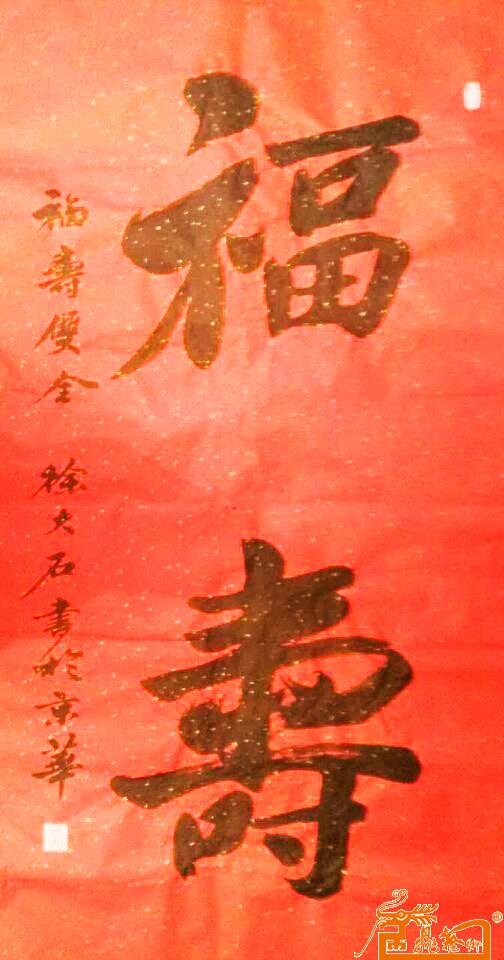 福壽
福壽雙全 徐大石書於京華